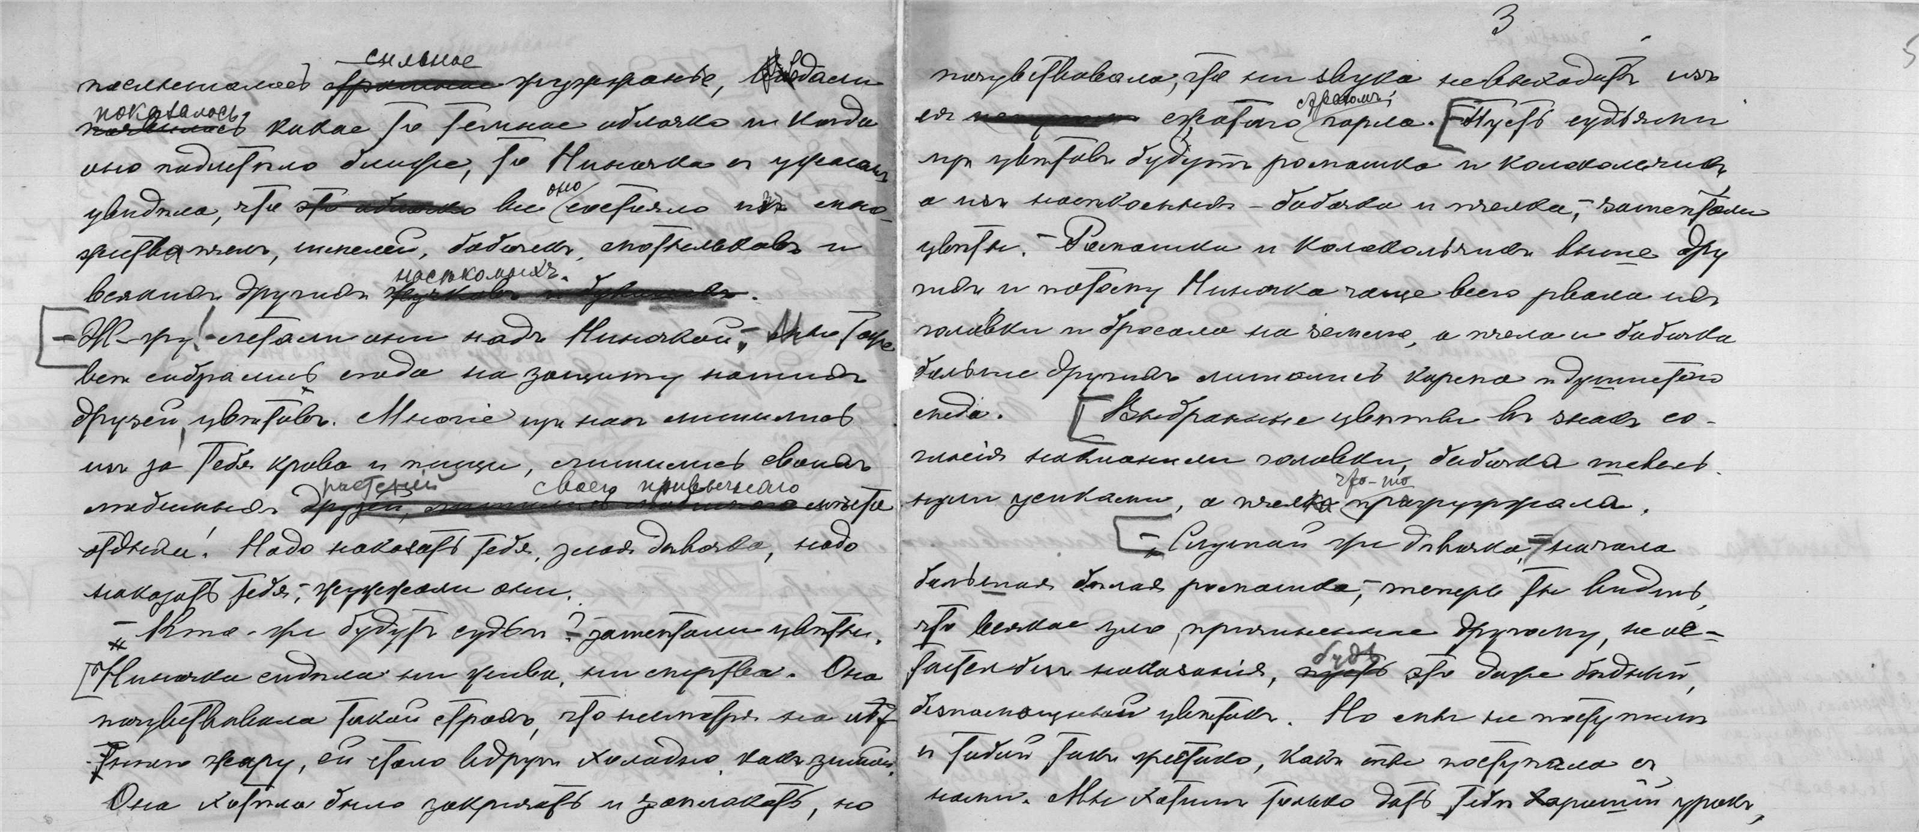 сильное
послышалось жужжанье, вдали
показалось
какое то темное облачко и когда
оно подлетѣло ближе, то Ниночка съ ужасомъ
оно
увидѣла, что это облачко все состояло изъ мно-
жества пчелъ, шмелей, бабочекъ, мотыльковъ и
насѣкомыхъ.
всякихъ другихъ жучковъ и букашекъ.
– Ж-жу! – летали они надъ Ниночкой, – мы тоже
всѣ собрались сюда на защиту нашихъ
друзей, цвѣтовъ. Многіе изъ насъ лишились
изъ за тебя крова и пищи, лишились своихъ
растеній своего привычнаго
любимыхъ друзей, лишились любимаго мѣста
отдыха! Надо наказать тебя, злая дѣвочка, надо
наказать тебя, – жужжали они.
– Кто-же будутъ судьи? – зашептали цвѣты.
Ниночка сидѣла ни жива, ни мертва. Она
почувствовала такой страхъ, что несмотря на лѣт-
нюю жару, ей стало вдругъ холодно, какъ зимой.
Она хотѣла было закричать и заплакать, но
3
почувствовала, что ни звука не выходитъ изъ
страхомъ
ея сжатаго горла. – Пусть судьями
изъ цвѣтовъ будутъ ромашка и колокольчикъ,
а изъ насѣкомыхъ – бабочка и пчелка, – зашептали
цвѣты. – Ромашки и колокольчики выше дру
гихъ и потому Ниночка чаще всего рвала ихъ
головки и бросала на землю, а пчела и бабочка
больше другихъ лишались корма и душистаго
меда. Выбранные цвѣты въ знакъ со-
гласія наклонили головки, бабочка шевель-
что-то
нула усиками, а пчелка прожужжала.
– Слушай же дѣвочка, – начала
большая бѣлая ромашка, – теперь ты видишь,
что всякое зло, причиненное другому, не ос-
будь
тается безъ наказанія, пусть это даже бѣдный,
безпомощный цвѣтокъ. Но мы не поступимъ
съ тобой такъ жестоко, какъ ты поступала съ
нами. Мы хотимъ только дать тебѣ хорошій урокъ,